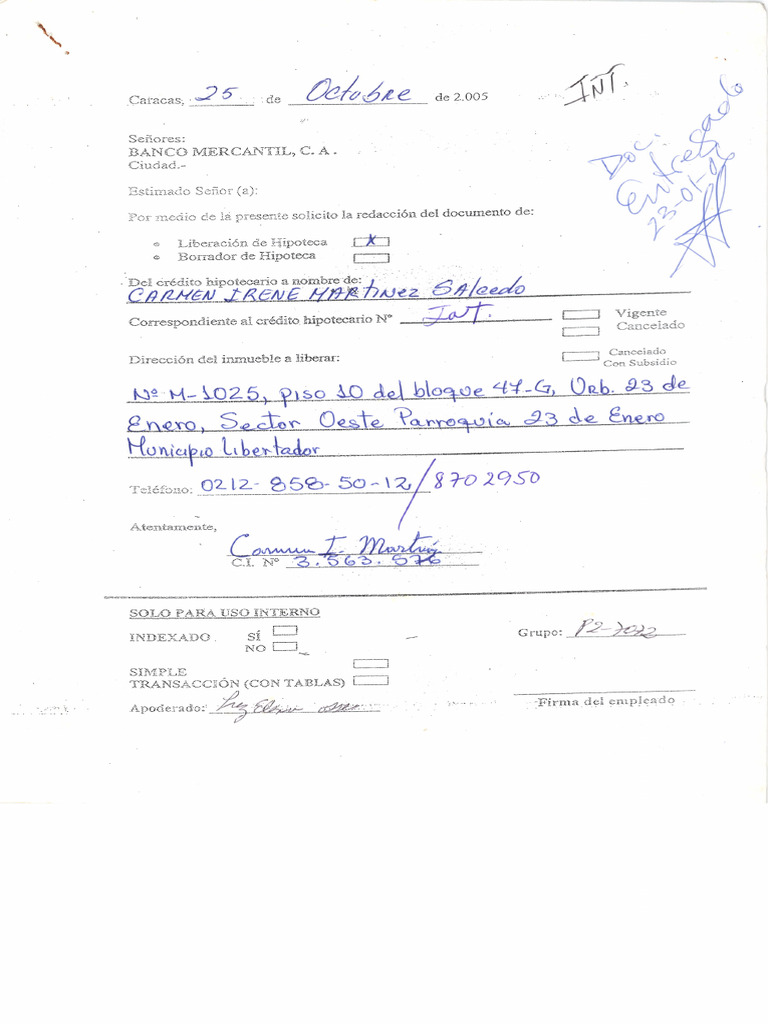 Caracas, 25 de Octubre de 2.005
INT.
Doc.
Entregado
23-01-06
Señores:
BANCO MERCANTIL, C. A.
Ciudad.-
Estimado Señor (a):
Por medio de la presente solicito la redacción del documento de:
• Liberación de Hipoteca X
• Borrador de Hipoteca
Del crédito hipotecario a nombre de:
CARMEN IRENE MARTINEZ SALCEDO
Correspondiente al crédito hipotecario Nº Int. Vigente
Cancelado
Dirección del inmueble a liberar: Cancelado
Con Subsidio
Nº M-1025, piso 10 del bloque 47-G, Urb. 23 de
Enero, Sector Oeste Parroquia 23 de Enero
Municipio Libertador
Teléfono: 0212-858-50-12/8702950
Atentamente,
Carmen I. Martinez
C.I. Nº 3.563.576
SOLO PARA USO INTERNO
INDEXADO SÍ
NO
Grupo: P2-7022
SIMPLE
TRANSACCIÓN (CON TABLAS)
Apoderado:
Firma del empleado